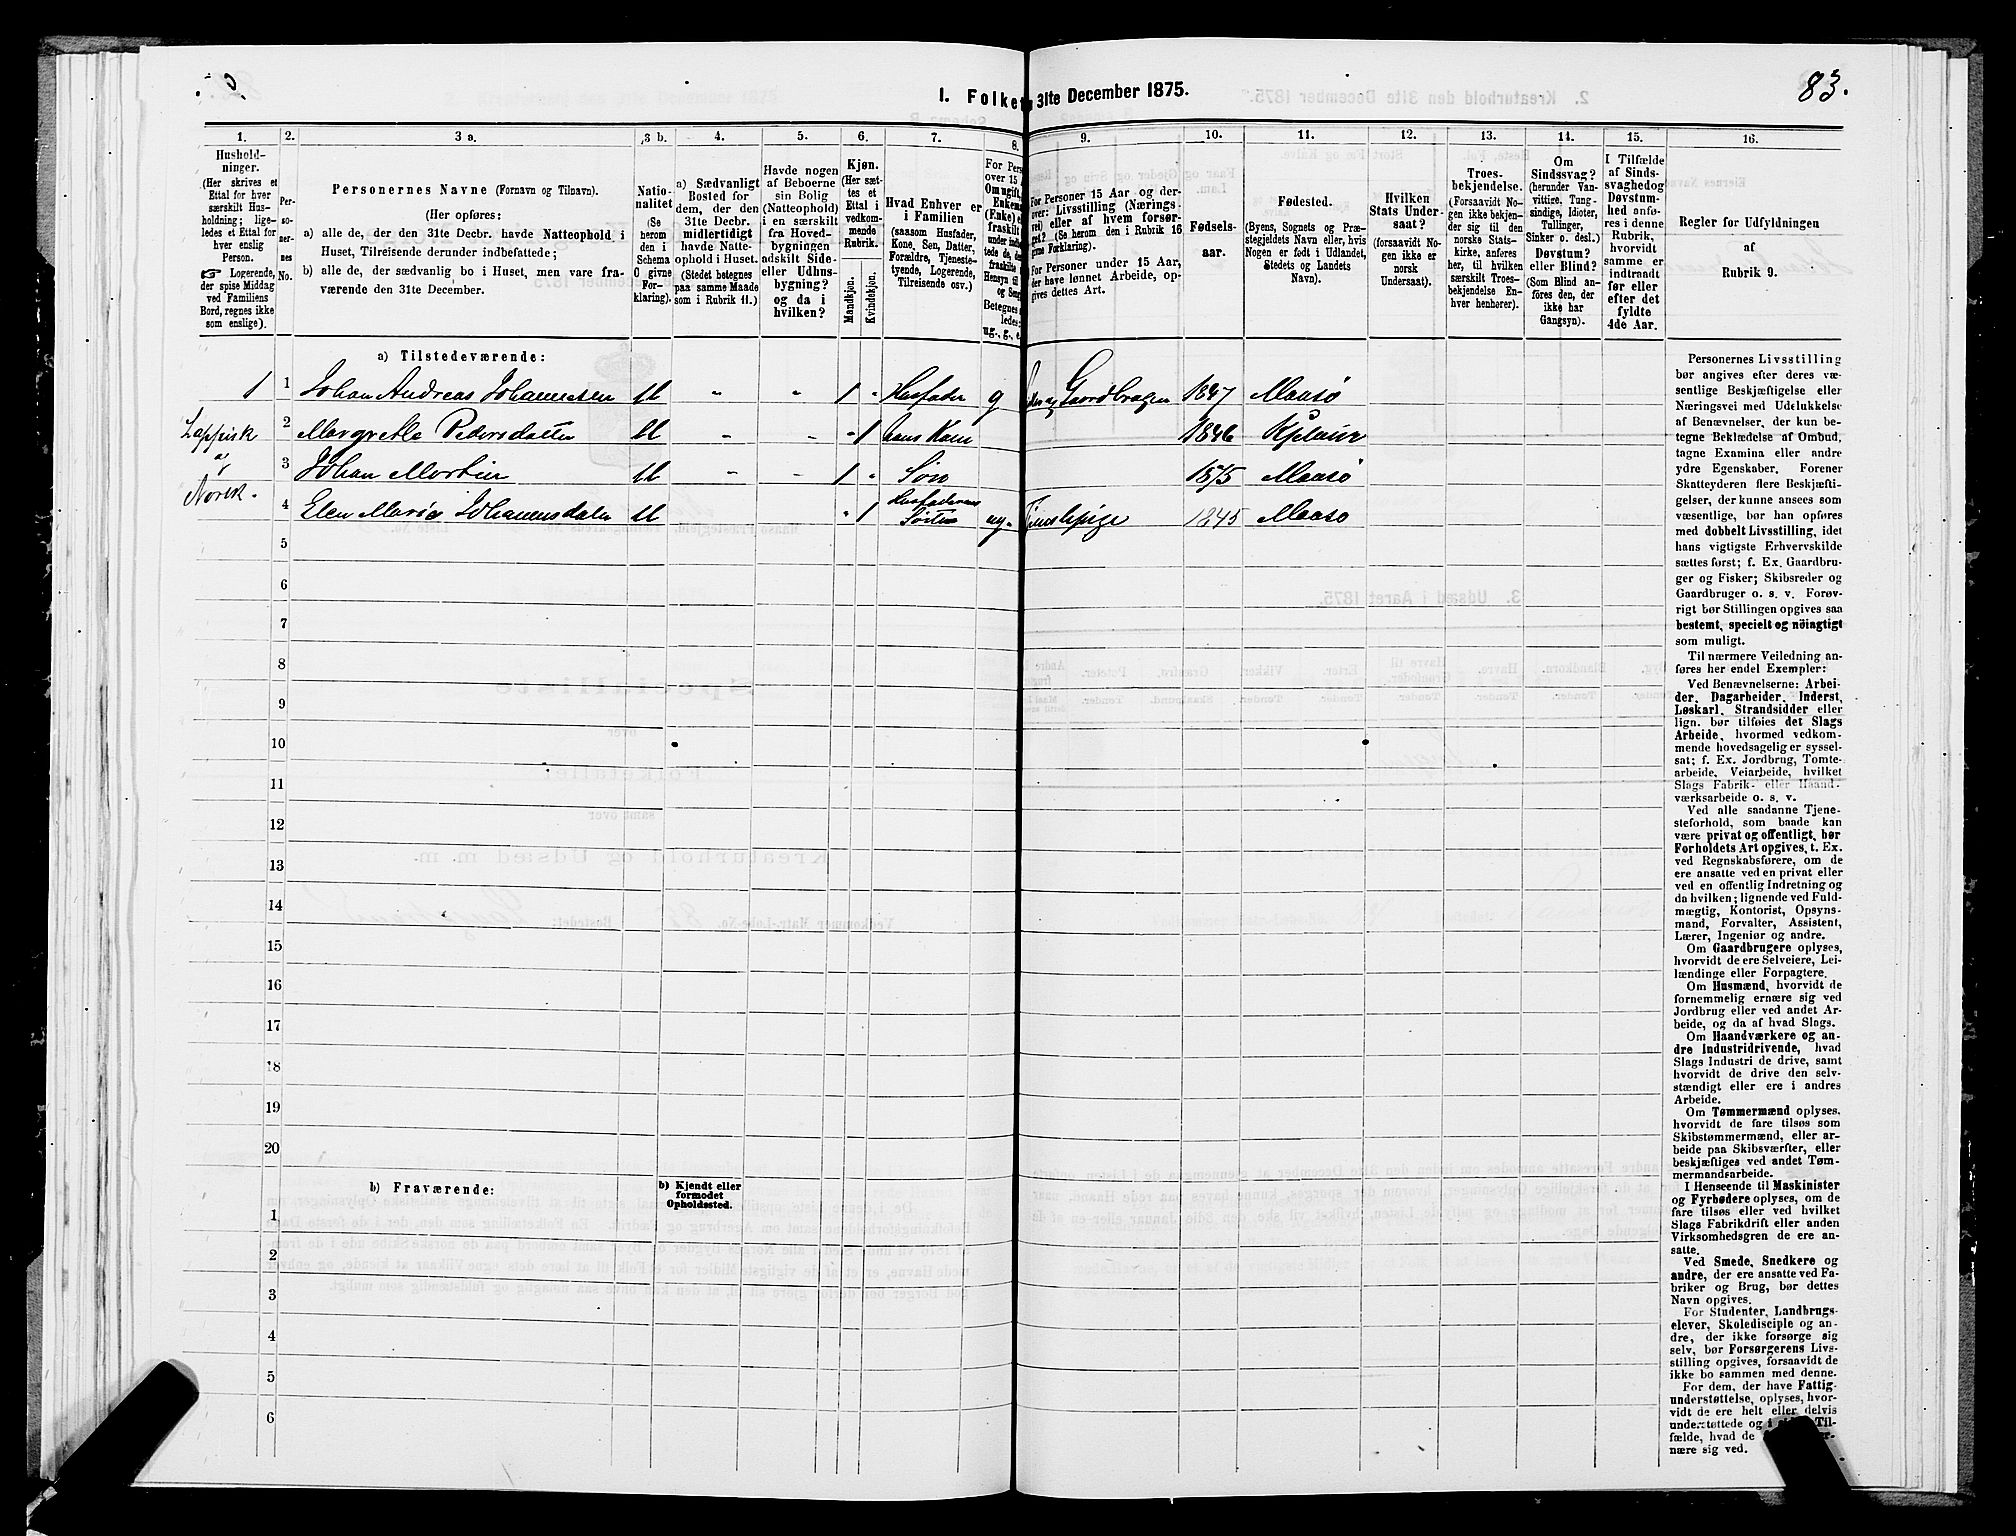 83.
I. Folket
31te December 1875.
1.
2.
3 a.
3 b.
4.
5.
6.
7.
8.
9.
10.
11.
12.
13.
14.
15.
16.
Hushold-
ninger.
(Her skrives et
Ettal for hver
særskilt Hus-
holdning; lige-
ledes et Ettal for
hver enslig
Person.
☞ Logerende,
der spise Middag
ved Familiens
Bord, regnes ikke
som enslige).
Per-
so-
ner-
nes
No.
Personernes Navne (Fornavn og Tilnavn).
(Her opføres:
a) alle de, der den 31te Decbr. havde Natteophold i
Huset, Tilreisende derunder indbefattede;
b) alle de, der sædvanlig bo i Huset, men vare fra-
værende den 31te December.
Natio-
nalitet
(Se
herom
den i
Schema
O givne
For-
klaring).
a) Sædvanligt
Bosted for
dem, der den
31te Decbr.
midlertidigt
havde Natte-
ophold i Huset.
(Stedet betegnes
paa samme Maade
som i Rubrik 11.)
Havde nogen
af Beboerne
sin Bolig
(Natteophold)
i en særskilt
fra Hoved-
bygningen
adskilt Side-
eller Udhus-
bygning?
og da i
hvilken?
Kjøn.
(Her sæt-
tes et
Ettal i
vedkom-
mende
Rubrik.
Mandkjøn.
Kvindekjøn.
Hvad Enhver er
i Familien
(saasom Husfader,
Kone, Søn, Datter,
Forældre, Tjeneste-
tyende, Logerende,
Tilreisende osv.)
For Pers
over 15
Om ugift,
Enkema
(Enke)
fraskilt
ug., g., e.
For Personer 15 Aar og der-
over: Livsstilling (Nærings-
vei) eller af hvem forsør-
get? (Se herom den i Rubrik 16
givne Forklaring).
For Personer under 15 Aar,
der have lønnet Arbeide, op-
gives dettes Art.
Fødsels-
aar.
Fødested.
(Byens, Sognets og Præ-
stegjeldets Navn eller, hvis
Nogen er født i Udlandet,
Stedets og Landets
Navn).
Hvilken
Stats Under-
saat?
(forsaavidt No-
gen ikke er
norsk
Undersaat).
Troes-
bekjendelse.
(Forsaavidt No-
gen ikke bekjen-
der sig til den
norske Stats-
kirke, anføres
her, til hvilken
særskilt Troes-
bekjendelse En-
hver henhører).
Om
Sindssvag?
(herunder Van-
vittige, Tung-
sindige, Idioter,
Tullinger,
Sinker o. desl.)
Døvstum?
eller Blind?
(Som Blind an-
føres den, der
ikke har
Gangsyn).
I Tilfælde
af Sinds-
svaghedog
Døvstum-
hed anfø-
res i denne
Rubrik,
hvorvidt
samme er
indtraadt
før eller
efter det
fyldte
4de Aar.
Regler for Udfyldningen
af
Rubrik 9.
a) Tilstedeværende:
1 1 Johan Andreas Johannesen M " " 1 " Husfader g Gaardbruger 1847 Maasø
Lappisk 2 Margrethe Pedersdatter M " " " 1 hans Kone 1846
3 Johan Mortin M " " 1 " Søn 1875 Maasø
Norsk. 4 Elen Maria Johannesdatter M " 1 Husfaderens
Søster ug. 1845 Maasø
5
6
7
8
9
10
11
12
13
14
15
16
17
18
19
20
b) Fraværende:
b) Kjendt eller
formodet
Opholdssted.
1
2
3
4
5
6
Personernes Livsstilling
bør angives efter deres væ-
sentlige Beskjæftigelse eller
Næringsvei med Udelukkelse
af Benævnelser, der kun be-
tegne Beklædelse af Ombud,
tagne Examina eller andre
ydre Egenskaber. Forener
Skatteyderen flere Beskjæfti-
gelser, der kunne ansees som
væsentlige, bør han opføres
med dobbelt Livsstilling, idet
hans vigtigste Erhvervskilde
sættes først; f. Ex. Gaardbru-
ger og Fisker; Skibsreder og
Gaardbruger o. s. v. Forøv-
rigt bør Stillingen opgives saa
bestemt, specielt og nöiagtigt
som muligt.
Til nærmere Veiledning an-
føres her endel Exempler:
Ved Benævnelserne: Arbei-
der, Dagarbeider, Inderst,
Løskarl, Strandsidder eller
lign. bør tilføies det Slags
Arbeide, hvormed vedkom-
mende hovedsagelig er syssel-
sat; f. Ex. Jordbrug, Tomte-
arbeide, Veiarbeide, hvilket
Slags Fabrik- eller Haand-
værksarbeide o. s. v.
Ved alle saadanne Tjene-
steforhold, som baade kan
være privat og offentligt, bør
Forholdets Art opgives, t. Ex.
ved Regnskabsførere, om de
ere ansatte ved en privat eller
ved en offentlig Indretning og
da hvilken; lignende ved Fuld-
mægtig, Kontorist, Opsyns-
mand, Forvalter, Assistent,
Lærer, Ingeniør og andre.
Om Gaardbrugere oplyses,
hvorvidt de ere Selveiere, Lei-
lændinge eller Forpagtere.
Om Husmænd, hvorvidt de
fornemmelig ernære sig ved
Jordbrug eller ved andet Ar-
beide, og da af hvad Slags.
Om Haandværkere og an-
dre Industridrivende, hvad
Slags Industri de drive, samt
hvorvidt de drive den selv-
stændigt eller ere i andres
Arbeide.
Om Tømmermænd oplyses,
hvorvidt de fare tilsøs som
Skibstømmermænd, eller ar-
beide paa Skibsværfter, eller
beskjæftiges ved andet Tøm-
mermandsarbeide.
I Henseende til Maskinister
og Fyrbødere oplyses, om de
fare tilsøs eller ved hvilket
Slags Fabrikdrift eller anden
Virksomhedsgren de ere an-
satte.
Ved Smede, Snedkere og
andre, der ere ansatte ved Fa-
briker og Brug, bør dettes
Navn opgives.
For Studenter, Landbrugs-
elever, Skoledisciple og an-
dre, der ikke forsørge sig
selv, bør Forsørgerens Livs-
stilling opgives, forsaavidt de
ikke bo sammen med denne.
For dem, der have Fattig-
understøttelse, oplyses, hvor-
vidt de ere helt eller delvis
understøttede og i Til-
fælde, hvad de
nære sig ved.